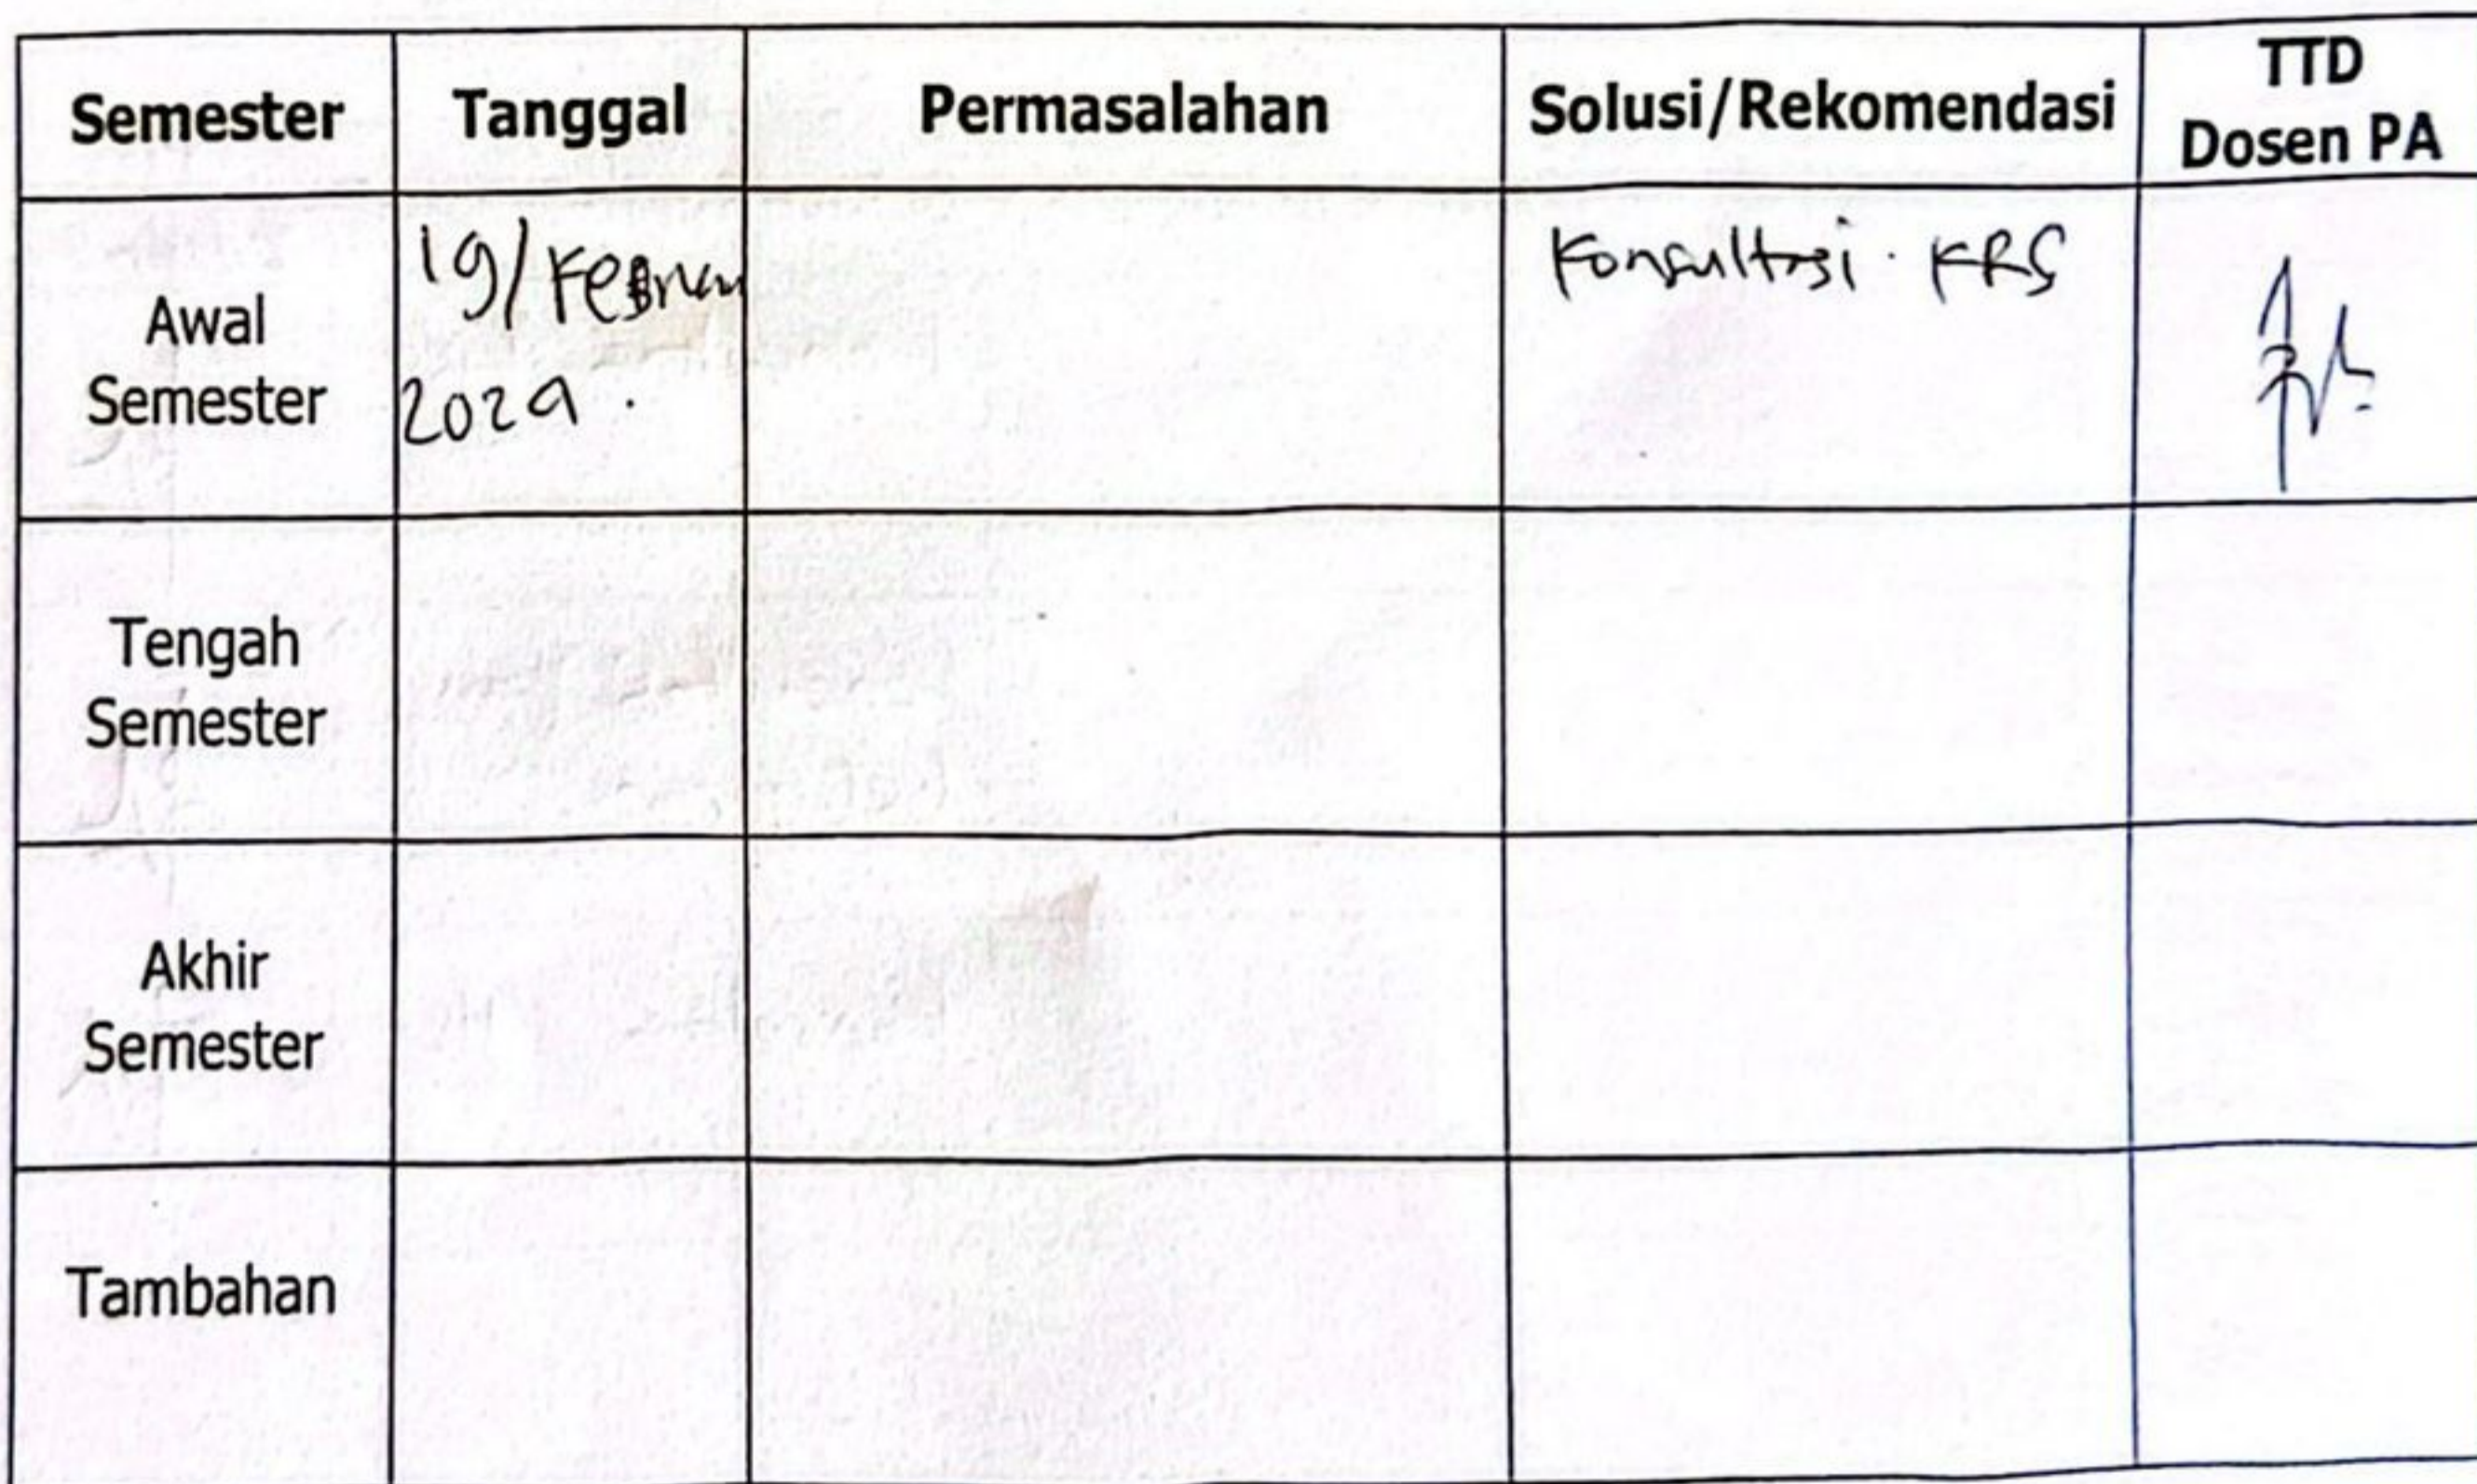 Semester Tanggal Permasalahan Solusi/Rekomendasi TTD
Dosen PA
Awal
Semester
19/Februari
2024.
Konsultasi KRS
Tengah
Semester
Akhir
Semester
Tambahan